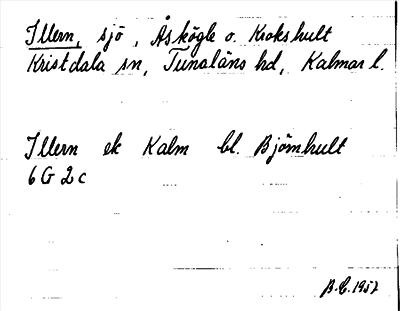 Illern, sjö, Åskögle o. Krokshult
Kristdala sn, Tunaläns hd, Kalmar l.
Illern ek Kalm bl. Björnhult
6G2c
B.E.1957